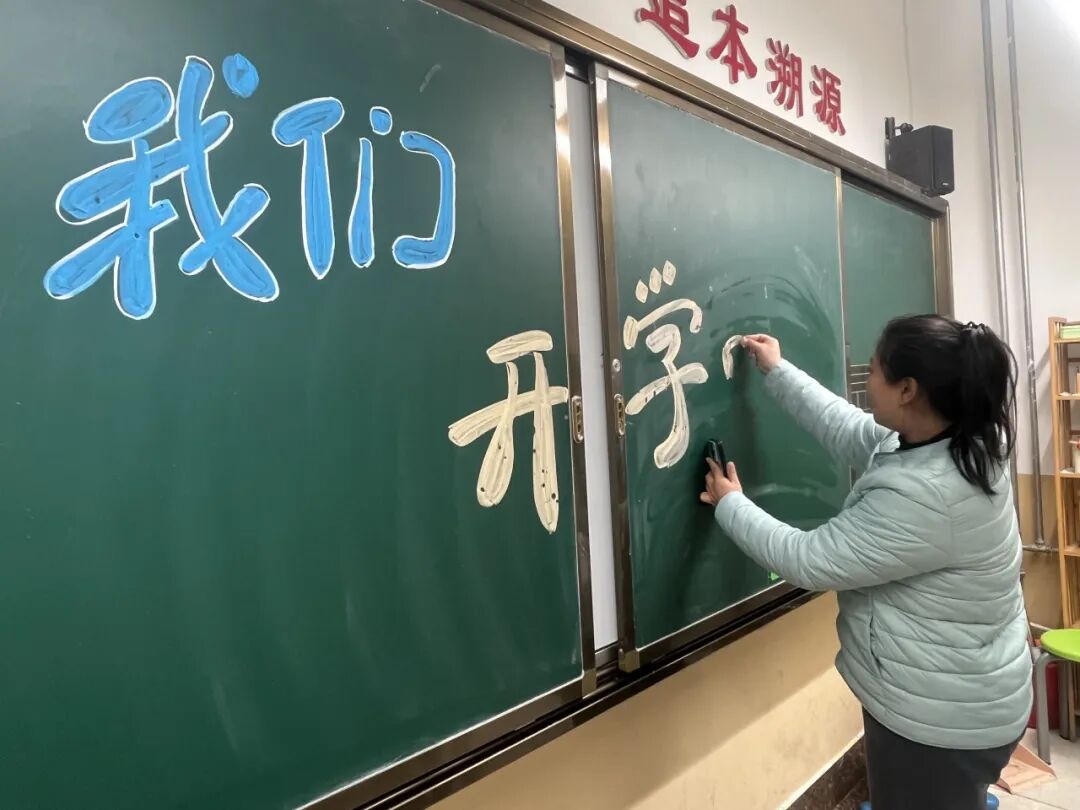 追本溯源
我们
开学